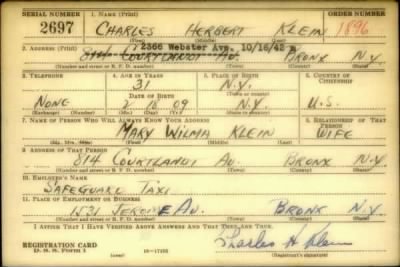 SERIAL NUMBER 1. NAME (Print) ORDER NUMBER
2697 CHARLES HERBERT KLEIN 1896
(First) (Middle) (Last)
2366 Webster Ave. 10/16/42
2. ADDRESS (Print) 814 COURTLANDT AV. BRONX N.Y.
(Number and street or R. F. D. number) (Town) (County) (State)
3. TELEPHONE 4. AGE IN YEARS 5. PLACE OF BIRTH 6. COUNTRY OF CITIZENSHIP
31 N.Y.
DATE OF BIRTH (Town or county)
NONE 2 18 09 N.Y. U.S.
(Exchange) (Number) (Mo.) (Day) (Yr.) (State or country)
7. NAME OF PERSON WHO WILL ALWAYS KNOW YOUR ADDRESS 8. RELATIONSHIP OF THAT PERSON
MARY WILMA KLEIN WIFE
(Mr., Mrs., Miss) (First) (Middle) (Last)
9. ADDRESS OF THAT PERSON
814 COURTLANDT AV. BRONX N.Y.
(Number and street or R. F. D. number) (Town) (County) (State)
10. EMPLOYER'S NAME
SAFEGUARD TAXI
11. PLACE OF EMPLOYMENT OR BUSINESS
1521 JEROME AV. BRONX N.Y.
(Number and street or R. F. D. number) (Town) (County) (State)
I AFFIRM THAT I HAVE VERIFIED ABOVE ANSWERS AND THAT THEY ARE TRUE.
REGISTRATION CARD Charles H Klein
D. S. S. Form 1 (Registrant's signature)